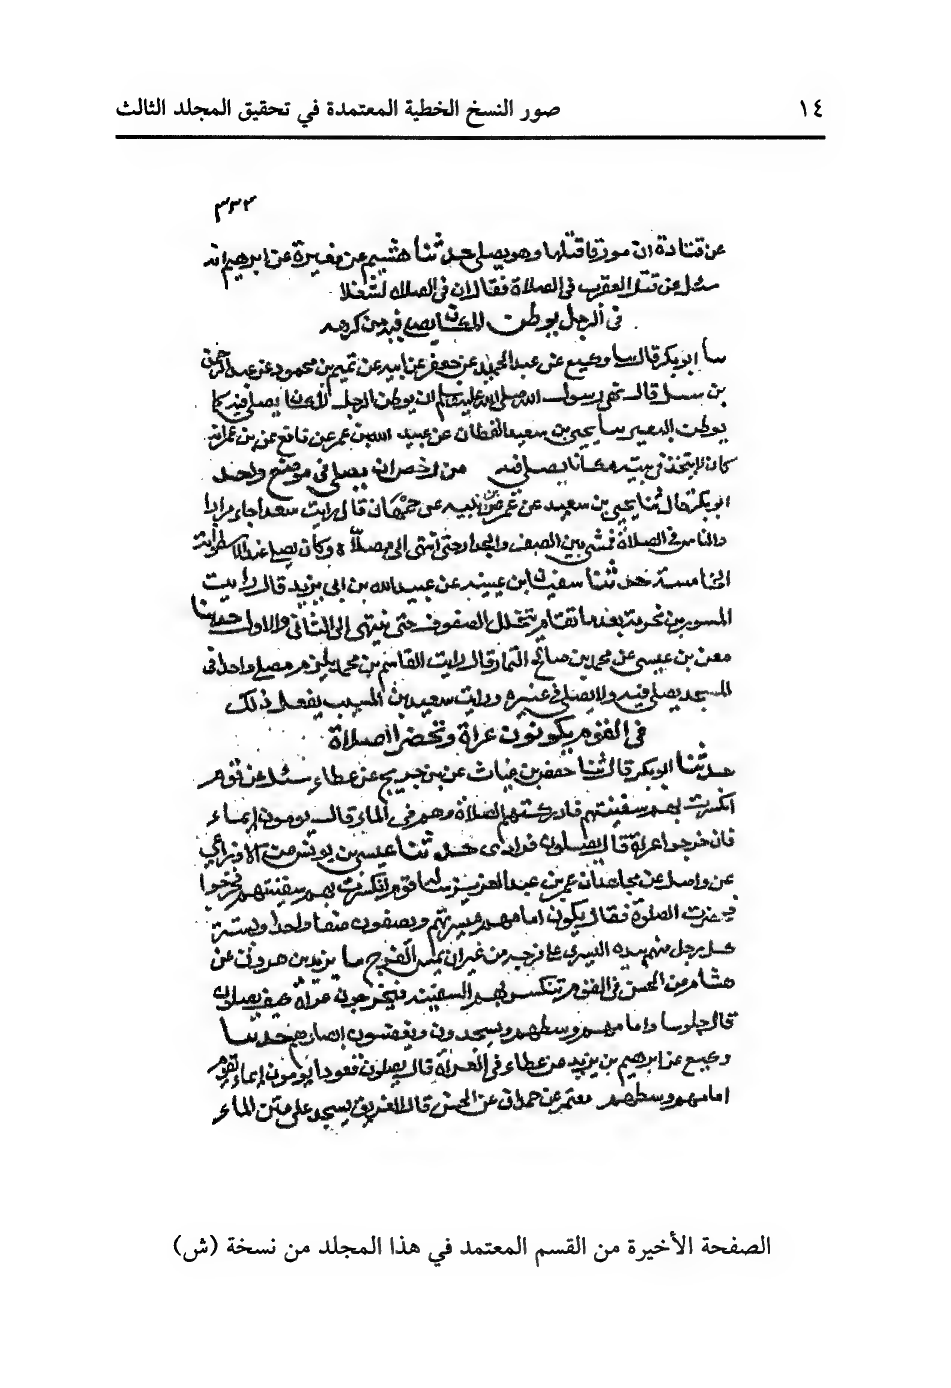 ١٤ صور النسخ الخطية المعتمدة في تحقيق المجلد الثالث
٣٣٢
عن قتادة ان مورقا قتلها وهو يصلي حدثنا هشيم عن مغيرة عن ابرهيم انه
سئل عن قتل العقرب في الصلاة فقال ان في الصلاه لشغلا
في الرجل يوطن المكان يصلي فيه من كرهه
سا ابو بكر قال سا وكيع عن عبد الحميد بن جعفر عن ابيه عن تميم بن محمود عن عبد الرحمن
بن شبل قال نهى رسول الله صلى الله عليه وسلم ان يوطن الرجل المكان يصلي فيه كما
يوطن البعير سا يحيى بن سعيد القطان عن عبيد الله بن عمر عن نافع عن بن عمر انه
كان لا يتخذ في بيته مكانا يصلي فيه من رخص ان يصلي في موضع واحد
ابو بكر قال ثنا يحيى بن سعيد عن عن ابيه عن جمهان قال رايت سعدا جاء مرارا
والناس في الصلاة فمشى بين الصف والجدار حتى انتهى الى مصلاه وكان يصلي عند الاسطوانة
الخامسة حدثنا سفيان ابن عيينه عن عبيد الله بن ابي يزيد قال رايت
المسور بن مخرمة بعدما تقام يتخلل الصفوف حتى ينتهي الى الثاني والاول حدثنا
معن بن عيسى عن محمد بن صالح التمار قال رايت القاسم بن محمد يلزم مصلى واحدا في
المسجد يصلي فيه ولا يصلي في غيره ورايت سعيد بن المسيب يفعل ذلك
في القوم يكونون عراة وتحضر الصلاة
حدثنا ابو بكر قال ثنا حفص بن غياث عن بن جريج عن عطاء سئل عن قوم
انكسرت بهم سفينتهم فادركتهم الصلاة وهم في الماء قال يومون ايماء
فان خرجوا عراة قال يصلون فرادى حدثنا عيسى بن يونس عن الاوزاعي
عن واصل عن مجاهد ان عمر بن عبد العزيز قوم انكسرت بهم سفينتهم فخرجوا
فحضرت الصلوة فقال يكون امامهم ميسرتهم ويصفون صفا واحدا ويستتر
كل رجل منهم بيده اليسرى على فرجه من غير ان يمس الفرج سا يزيد بن هرون عن
هشام عن الحسن في القوم تنكسر بهم السفينه فيخرجون عراة كيف يصلون
قال جلوسا وامامهم وسطهم ويسجدون ويغضون ابصارهم حدثنا
وكيع عن ابرهيم بن يزيد عن عطاء في العراة قال يصلون قعودا يومون ايماء يقوم
امامهم وسطهم معتمر عن عن الحسن قال الغريق يسجد على متن الماء
الصفحة الأخيرة من القسم المعتمد في هذا المجلد من نسخة (ش)